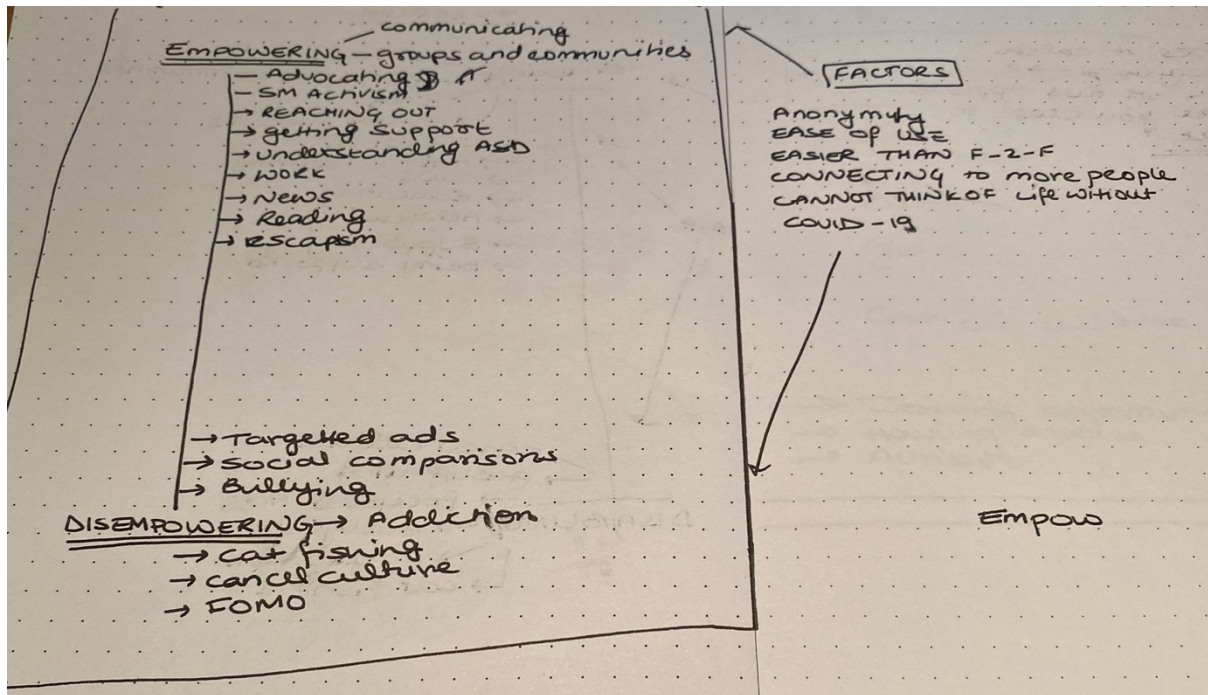 communicating
EMPOWERING — groups and communities
— Advocating
— SM Activism
→ REACHING OUT
→ getting support
→ understanding ASD
→ WORK
→ News
→ Reading
→ Escapism
→ Targetted ads
→ social comparisons
→ Bullying
DISEMPOWERING → Addiction
→ cat fishing
→ cancel culture
→ FOMO
FACTORS
Anonymity
EASE OF USE
EASIER THAN F-2-F
CONNECTING to more people
CANNOT THINK OF Life without
COVID-19
Empow